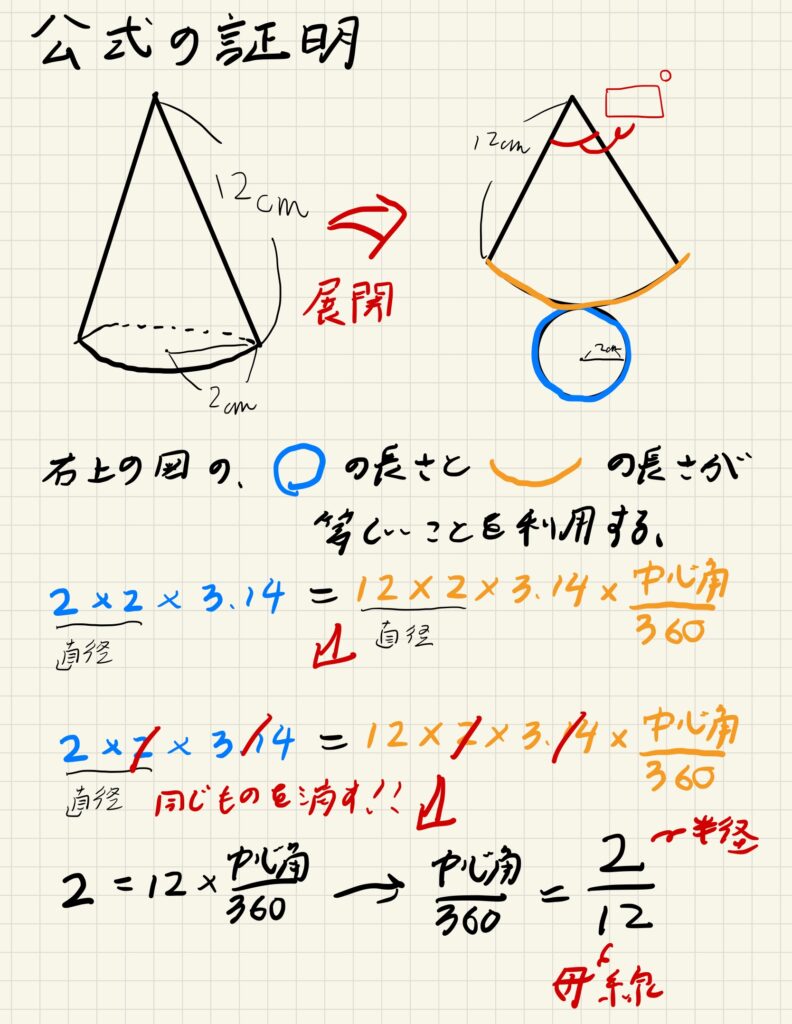 公式の証明
12cm
2cm
展開
12cm
°
2cm
右上の図の、 の長さと の長さが
等しいことを利用する、
2×2×3.14 = 12×2×3.14×中心角/360
直径 直径
2×2×3.14 = 12×2×3.14×中心角/360
直径 同じものを消す!!
2=12×中心角/360 → 中心角/360 = 2/12 半径
母線